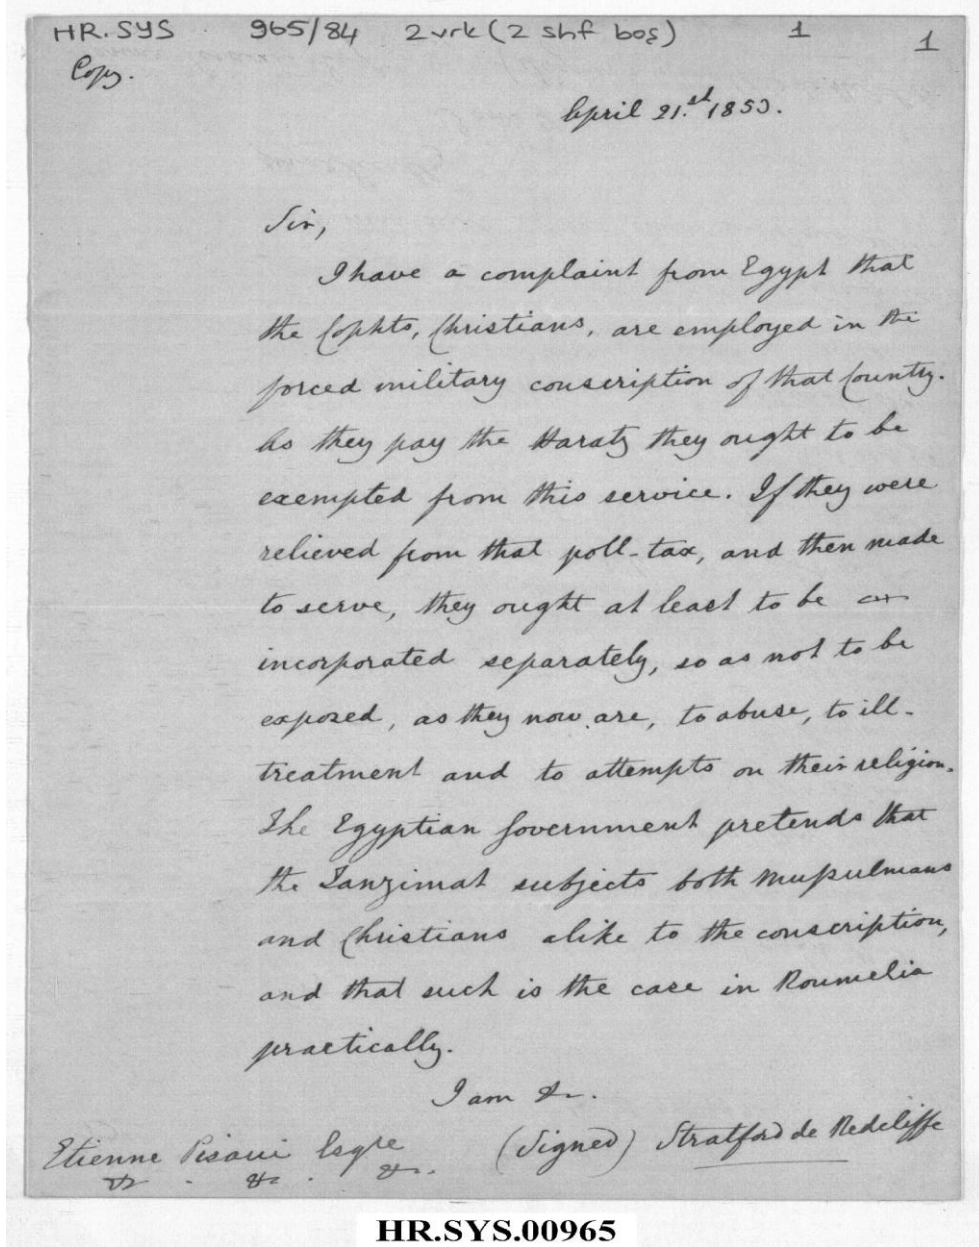 HR.SYS 965/84 2 vrk (2 shf boş) 1 1
Copy.
April 21.st 1853.
Sir,
I have a complaint from Egypt that
the Cophts, Christians, are employed in the
forced military conscription of that Country.
As they pay the Haratz they ought to be
exempted from this service. If they were
relieved from that poll-tax, and then made
to serve, they ought at least to be
incorporated separately, so as not to be
exposed, as they now are, to abuse, to ill-
treatment and to attempts on their religion.
The Egyptian Government pretends that
the Tanzimat subjects both Mussulmans
and Christians alike to the conscription,
and that such is the case in Roumelia
practically.
I am &c.
(Signed) Stratford de Redcliffe
Etienne Pisani Esqre
&c. &c. &c.
HR.SYS.00965